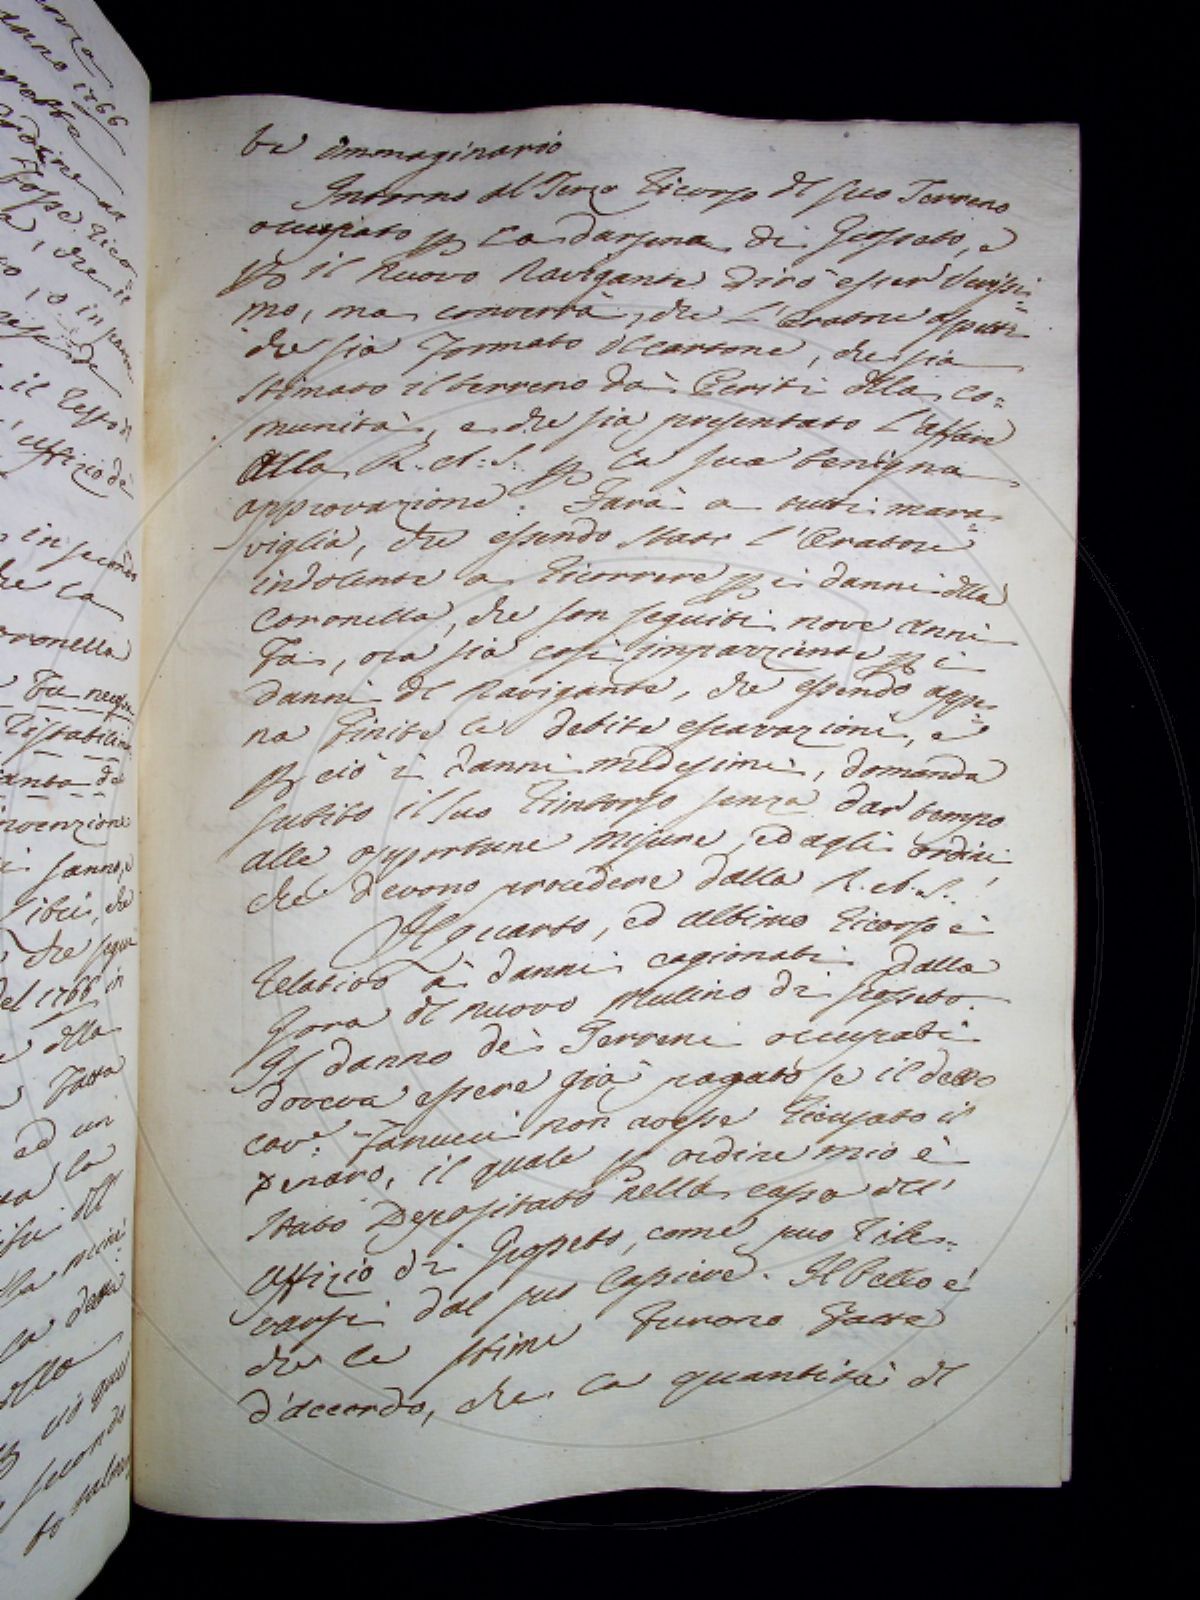 te immaginario
Intorno al Terzo Ricorso del suo Terreno
occupato p la darsena di Grosseto, e
p il nuovo Navigante dirò esser verissi=
mo, ma converrà, che l'Oratore aspetti
che sia formato il cartone, che sia
stimato il terreno dà Periti della co=
munità, e che sia presentato l'affare
alla R. A: S: p la sua benigna
approvazione. Farà a tutti mara=
viglia, che essendo stato l'Oratore
indolente a ricorrere p i danni della
Coronella, che son seguiti nove anni
fa, ora sia così impaziente p i
danni del Navigante, che essendo appe=
na finite le debite escavazioni, e
p ciò i danni medesimi, domanda
subito il suo rimborso senza dar tempo
alle opportune misure, ed agli ordini
che devono procedere dalla R. A. S.
Il quarto, ed ultimo ricorso è
relativo à danni cagionati dalla
Gora del nuovo Mulino di Grosseto.
Il danno dè Terreni occupati
doveva essere già pagato se il detto
Cav.e Fanucci non avesse ricusato il
Denaro, il quale p ordine mio è
stato Depositato nella cassa dell'
Uffizio di Grosseto, come può rile=
varsi dal suo Cassiere. Il bello è
che le stime furono fatte
d'accordo, che la quantità del
anno 1766
il resto di
Uffizio dè
in secondo
che la
Coronella
fu neces
ristabilim
anto di
invenzione
che segue
del 1766 in
della
fatta
ed un
la
la detta
secondo